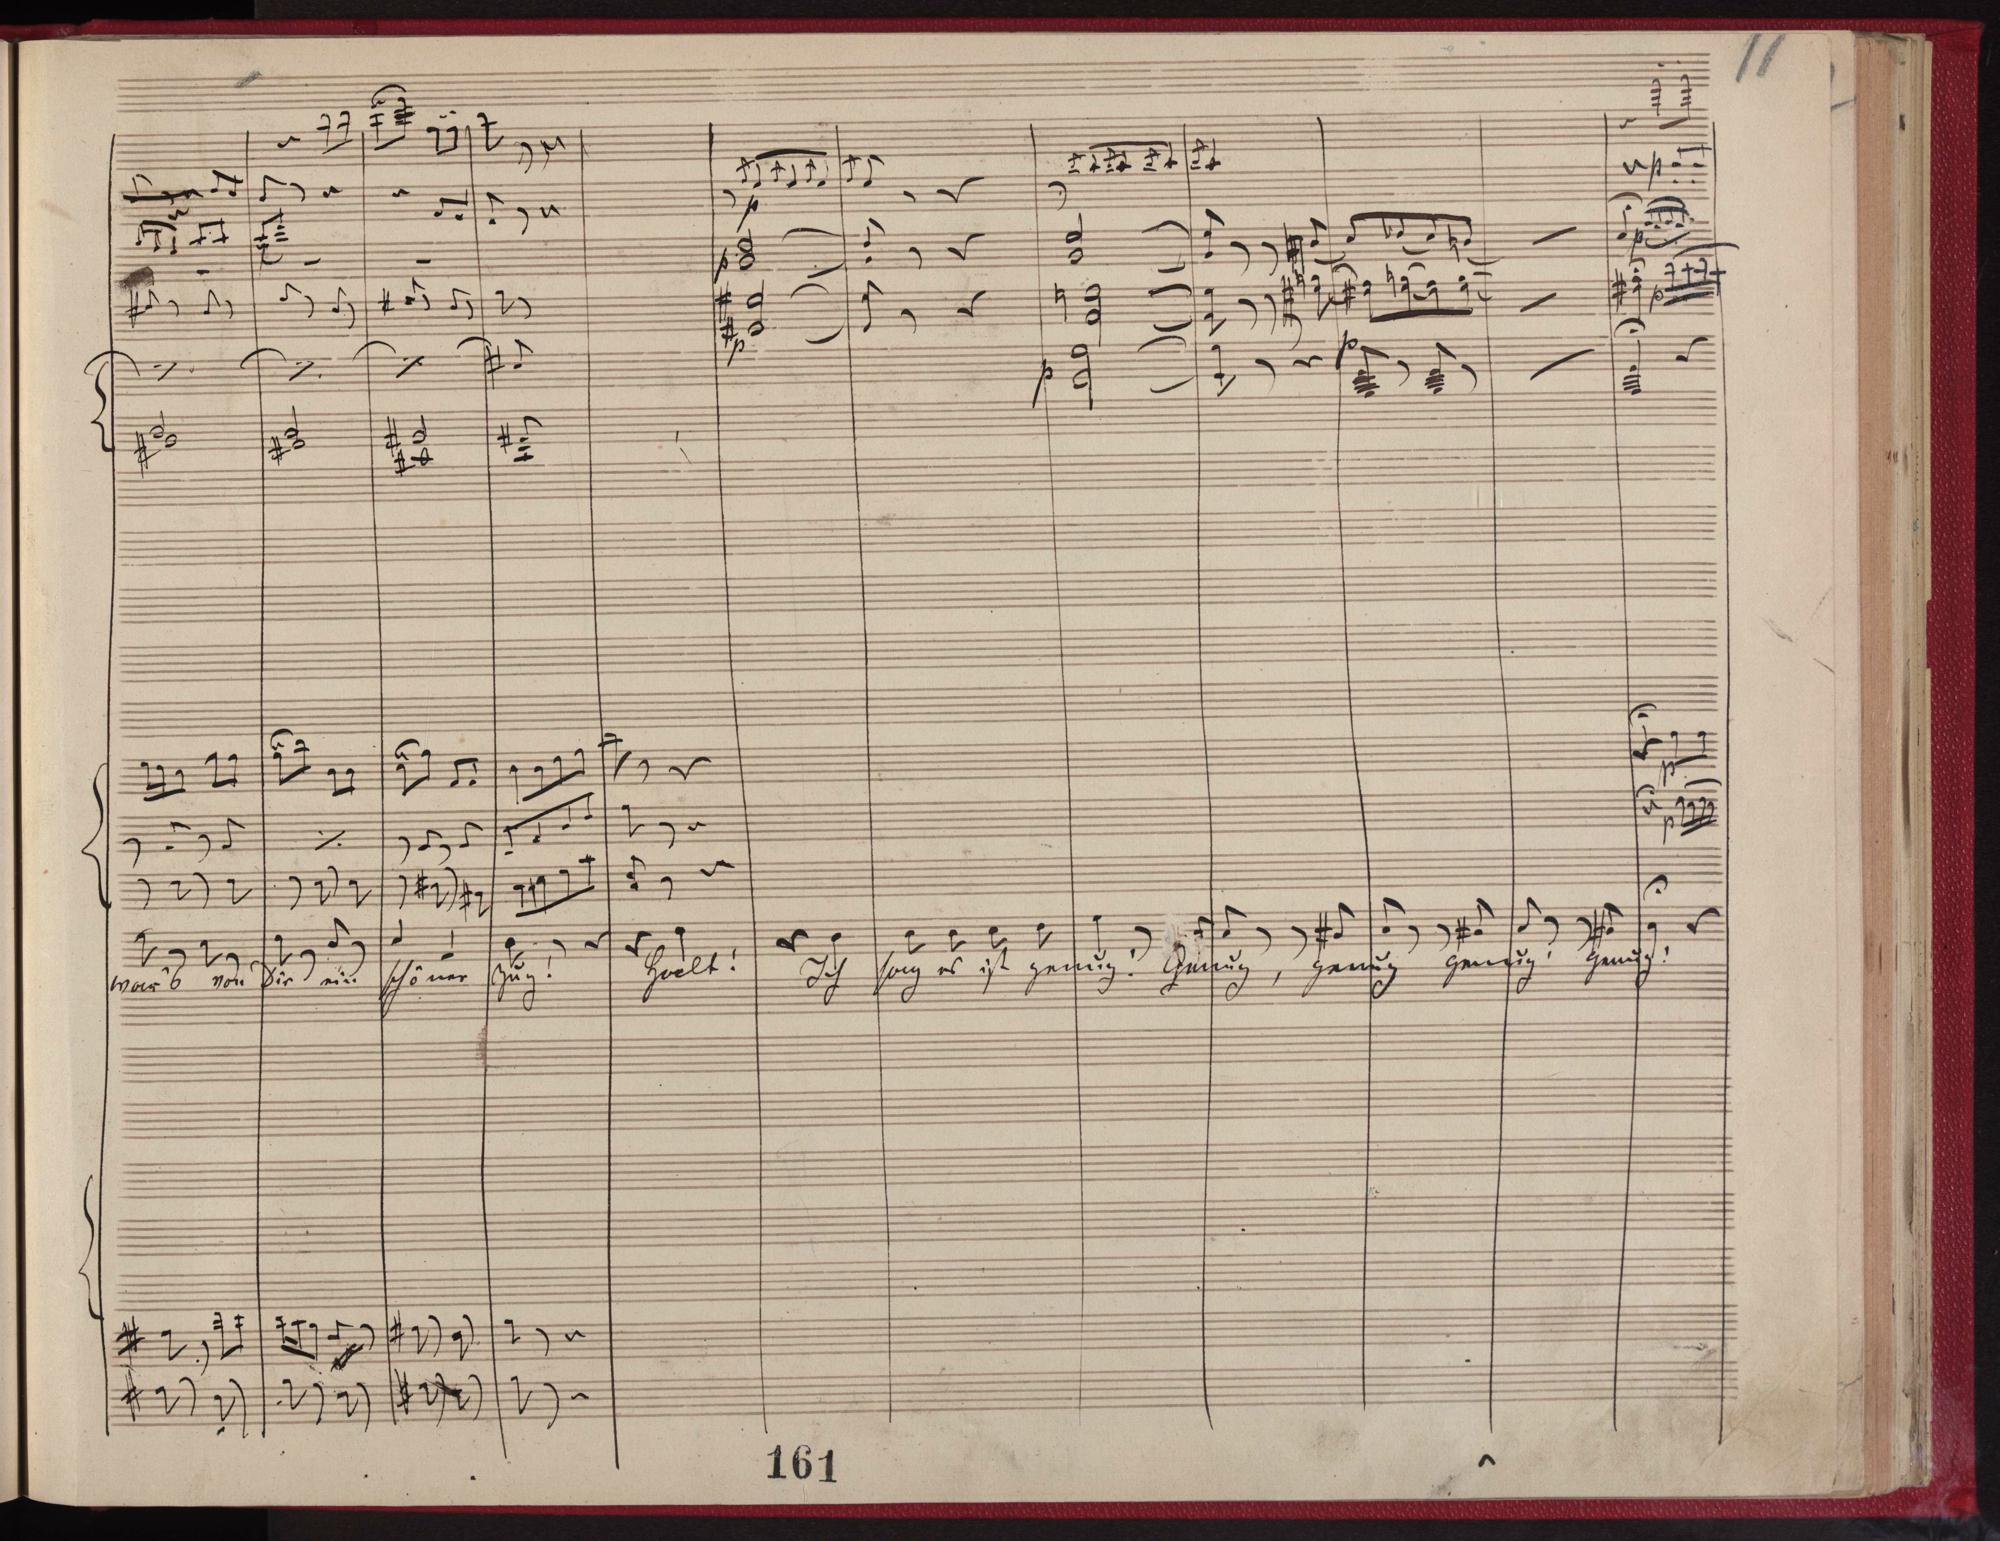 11
war's von Dir ein schöner Zug! Halt! Ich sag es ist genug! Genug, genug genug! Genug!
161